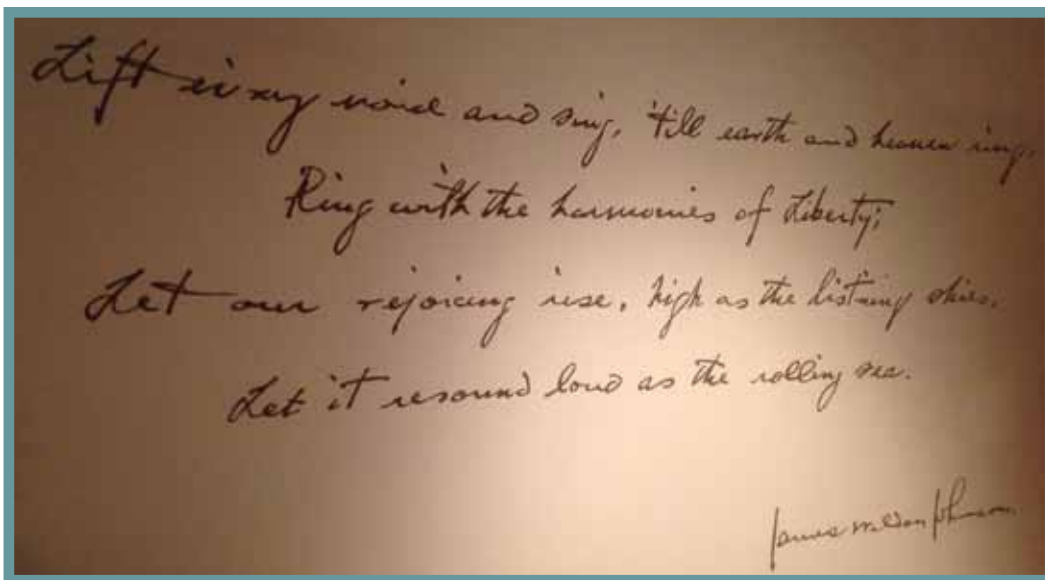 Lift every voice and sing, 'till earth and heaven ring,
Ring with the harmonies of Liberty;
Let our rejoicing rise, high as the list'ning skies,
Let it resound loud as the rolling sea.
James Weldon Johnson